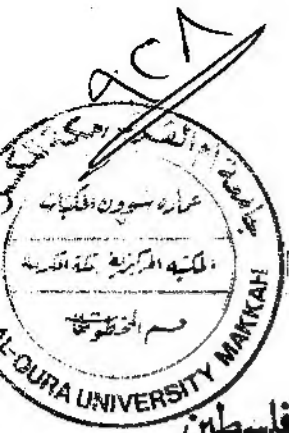 جامعة أم القرى بمكة المكرمة
عمادة شؤون المكتبات
المكتبة المركزية بمكة المكرمة
قسم المخطوطات
AL-QURA UNIVERSITY MAKKAH
فلسطين